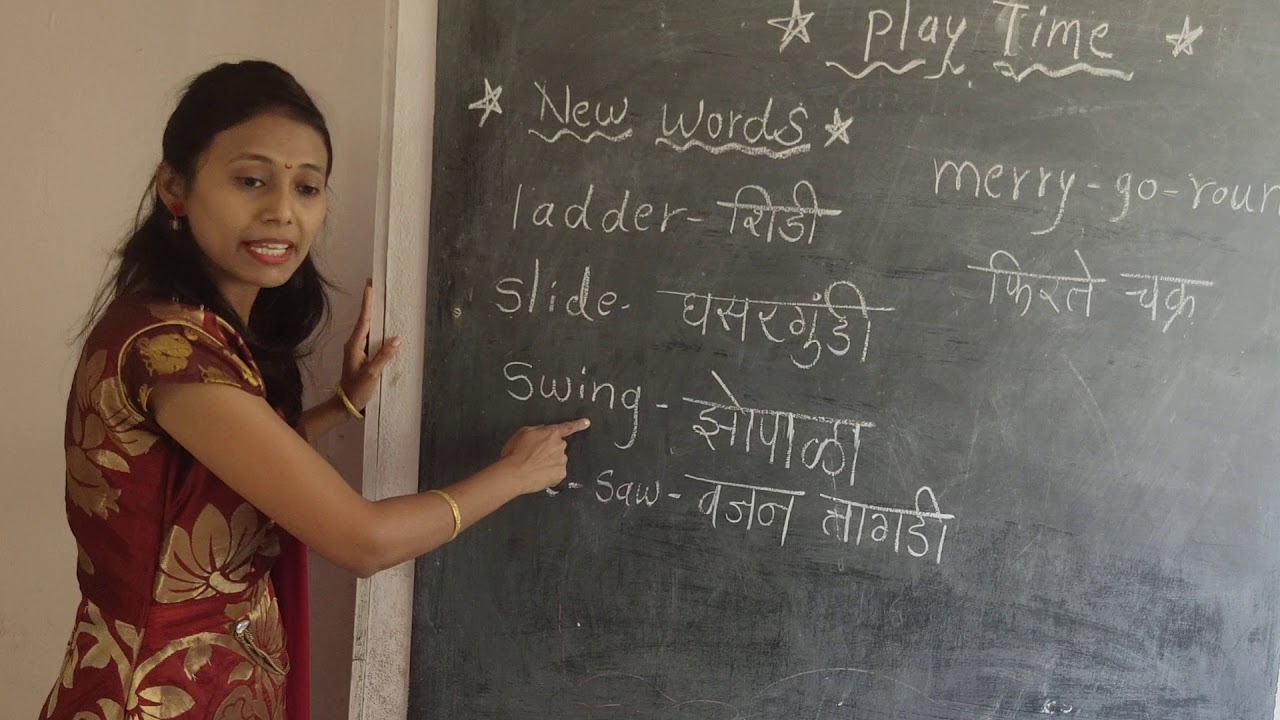 Play Time
New Words
ladder - शिडी
slide - घसरगुंडी
Swing - झोपाळा
- Saw - वजन तागडी
merry-go-roun
फिरते चक्र